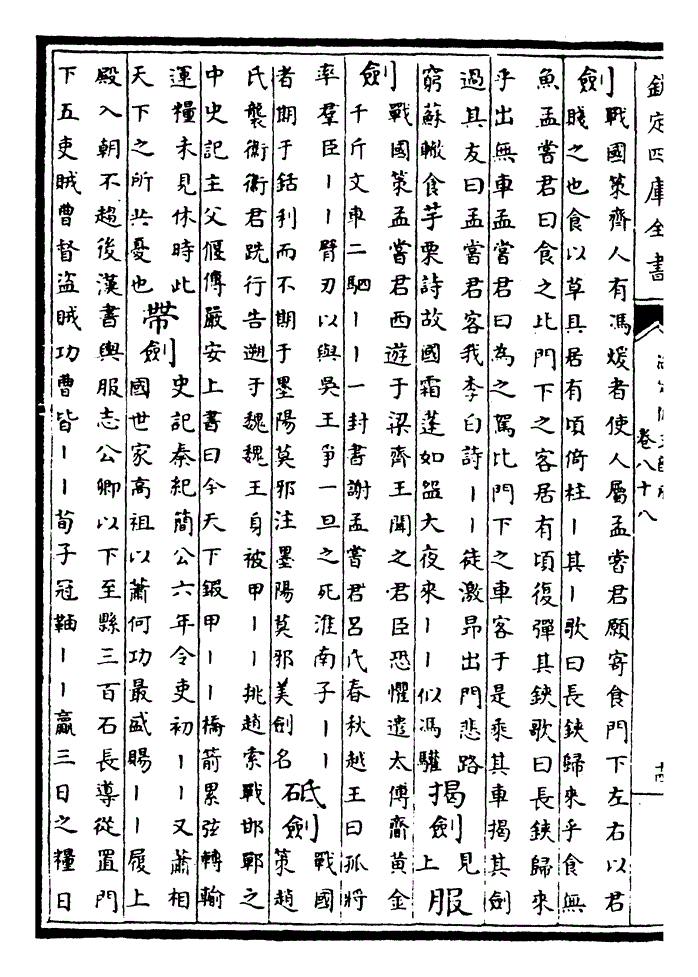 欽定四庫全書
卷八十八
劍戰國策齊人有馮煖者使人屬孟嘗君願寄食門下左右以君
賤之也食以草具居有頃倚柱丨其丨歌曰長鋏歸來乎食無
魚孟嘗君曰食之比門下之客居有頃復彈其鋏歌曰長鋏歸來
乎出無車孟嘗君曰為之駕比門下之車客于是乘其車揭其劍
過其友曰孟嘗君客我李白詩丨丨徒激昂出門悲路
窮蘇轍食芋栗詩故國霜蓬如盌大夜來丨丨似馮驩
揭劍見上
服
劍戰國策孟嘗君西遊于梁齊王聞之君臣恐懼遣太傅齎黃金
千斤文車二駟丨丨一封書謝孟嘗君呂氏春秋越王曰孤將
率羣臣丨丨臂刃以與吳王爭一旦之死淮南子丨丨
者期于銛利而不期于墨陽莫邪注墨陽莫邪美劍名
砥劍戰國
策趙
氏襲衛衛君跣行告遡于魏魏王身被甲丨丨挑趙索戰邯鄲之
中史記主父偃傳嚴安上書曰今天下鍜甲丨丨橋箭累弦轉輸
運糧未見休時此
天下之所共憂也
帶劍史記秦紀簡公六年令吏初丨丨又蕭相
國世家高祖以蕭何功最盛賜丨丨履上
殿入朝不趨後漢書輿服志公卿以下至縣三百石長導從置門
下五吏賊曹督盜賊功曹皆丨丨荀子冠䩜丨丨贏三日之糧日